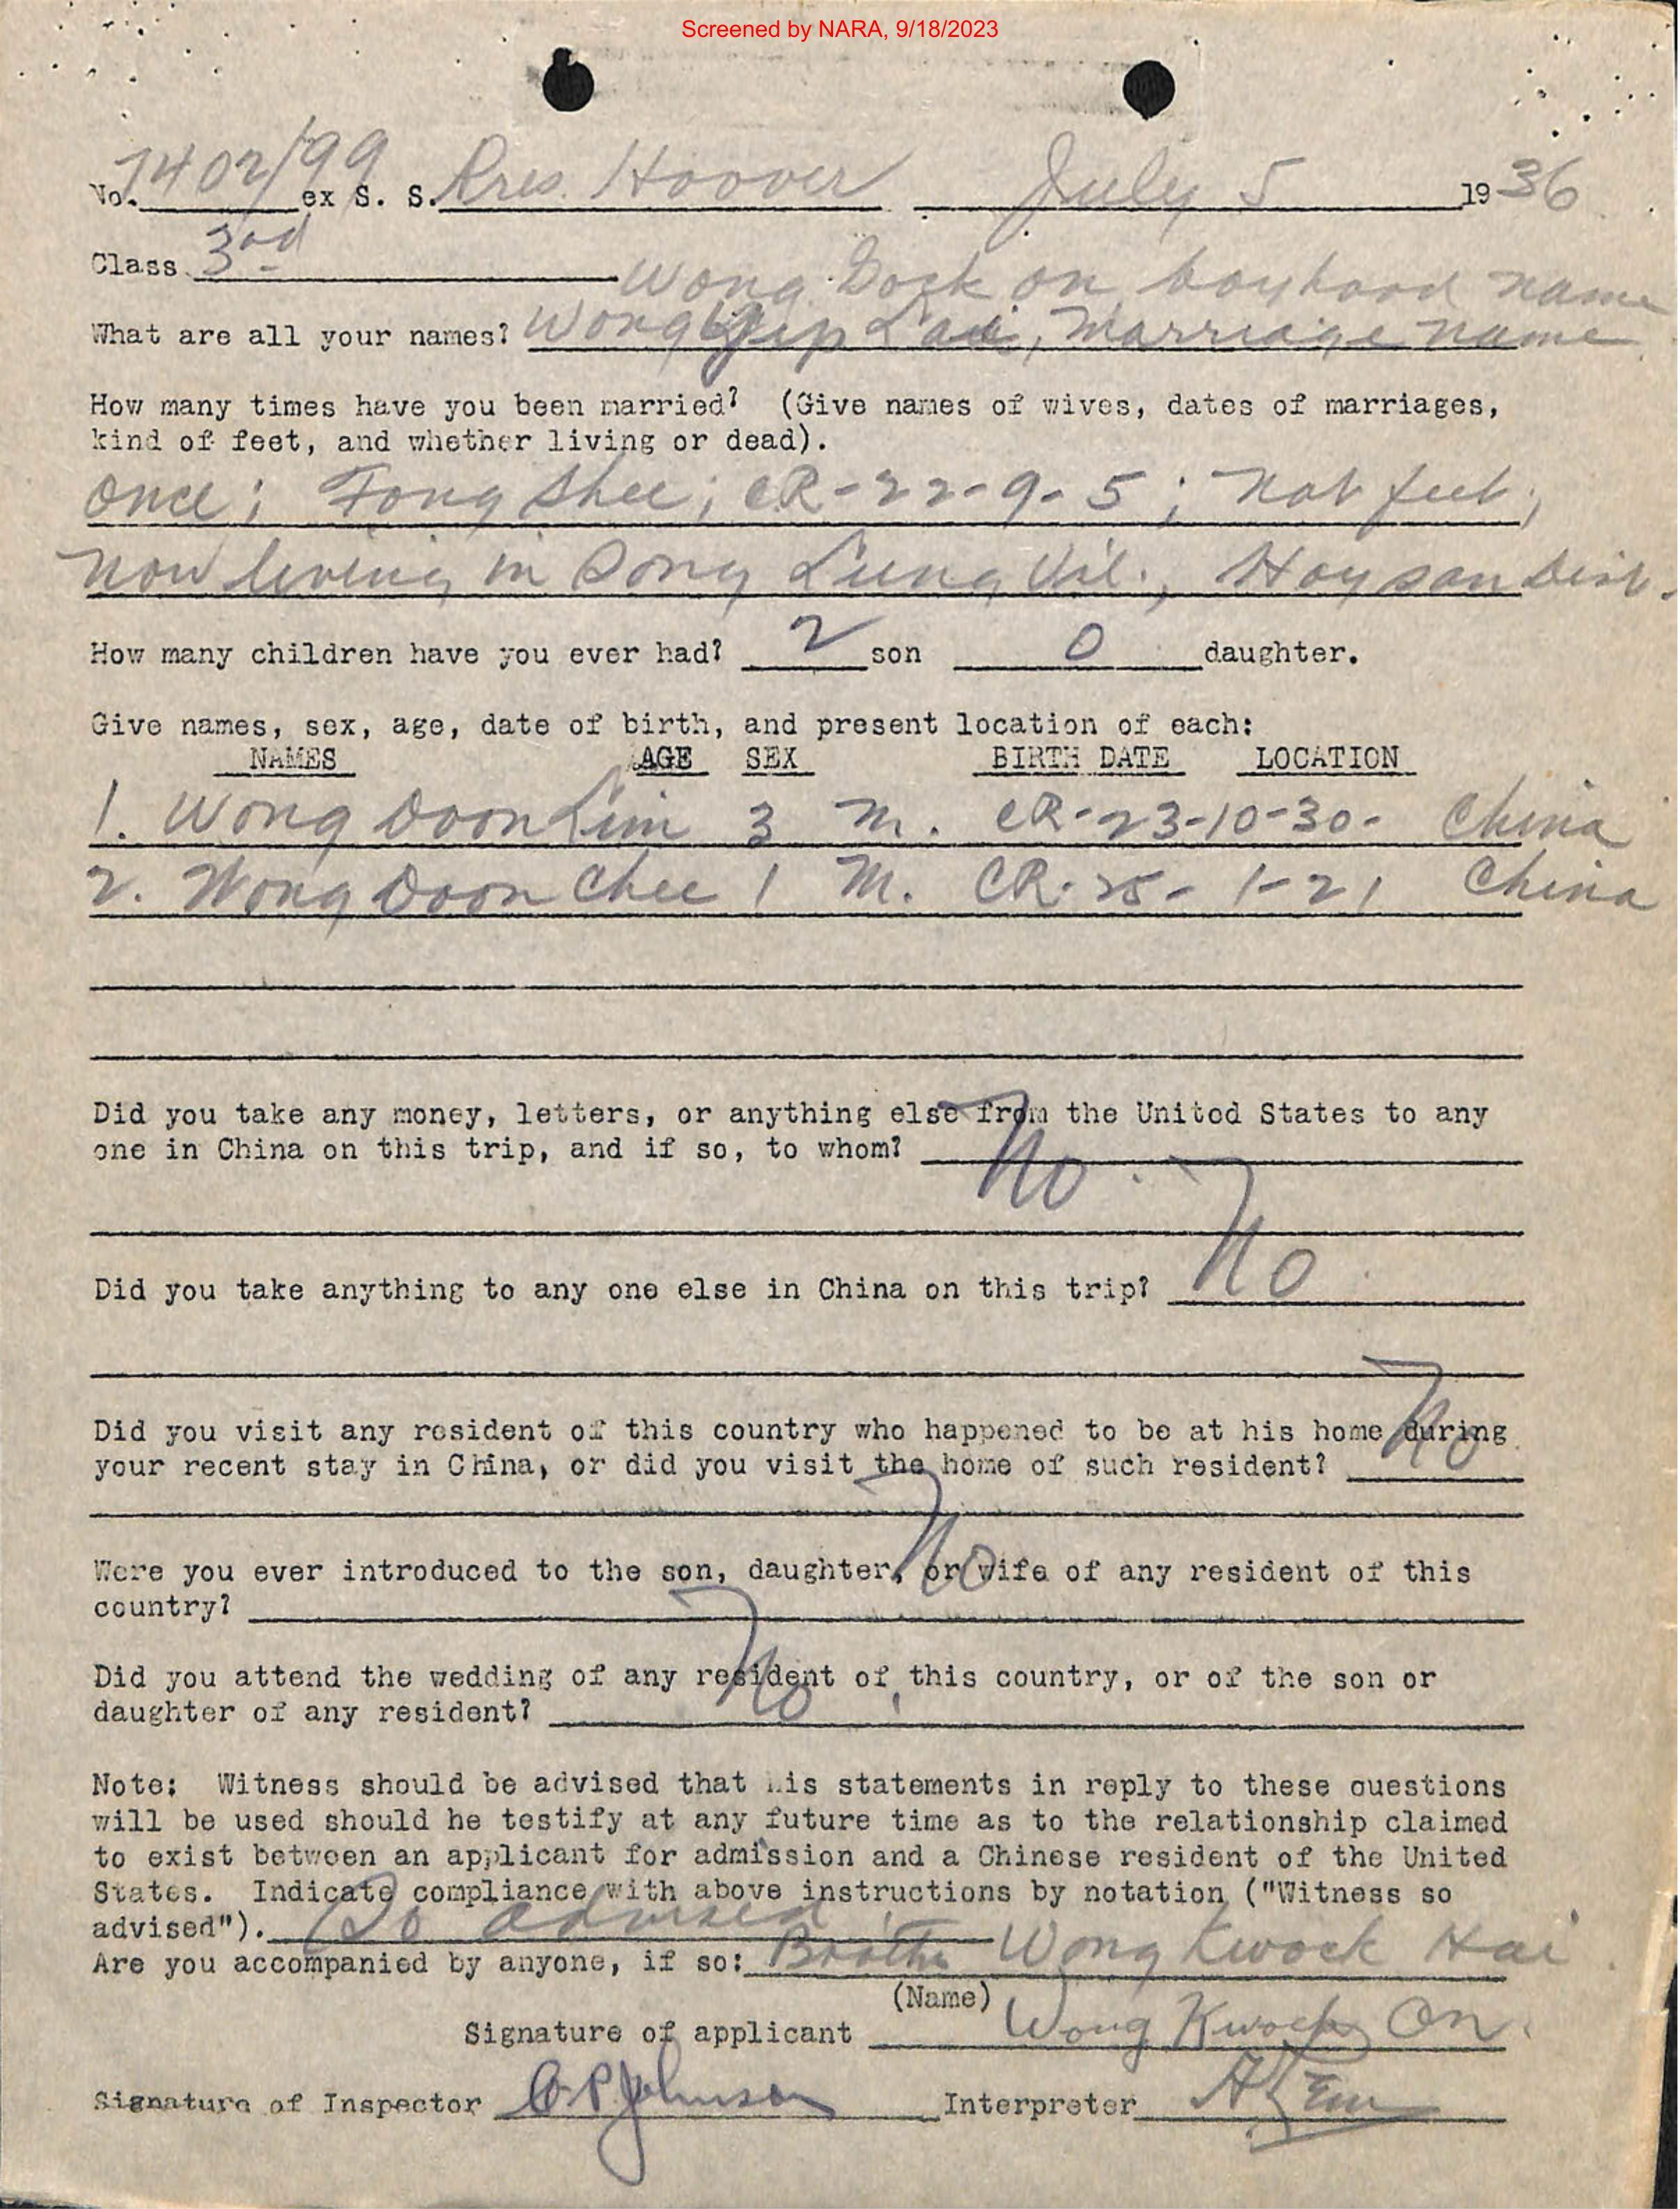 Screened by NARA, 9/18/2023
No. 7402/99 ex S. S. Pres. Hoover July 5 1936
Class 3rd
Wong Dock On boyhood name
What are all your names? Wong Yip Lai, Marriage name
How many times have you been married? (Give names of wives, dates of marriages,
kind of feet, and whether living or dead).
Once; Fong Shee; CR-22-9-5; Nat feet;
Now living in Dong Lung Vil., Hoysan Dist.
How many children have you ever had? 2 son 0 daughter.
Give names, sex, age, date of birth, and present location of each:
NAMES AGE SEX BIRTH DATE LOCATION
1. Wong Doon Lim 3 M. CR-23-10-30- China
2. Wong Doon Chee 1 M. CR-25-1-21 China
Did you take any money, letters, or anything else from the United States to any
one in China on this trip, and if so, to whom? No.
Did you take anything to any one else in China on this trip? No
Did you visit any resident of this country who happened to be at his home during
your recent stay in China, or did you visit the home of such resident? No
Were you ever introduced to the son, daughter, or wife of any resident of this
country? No
Did you attend the wedding of any resident of this country, or of the son or
daughter of any resident? No
Note: Witness should be advised that his statements in reply to these questions
will be used should he testify at any future time as to the relationship claimed
to exist between an applicant for admission and a Chinese resident of the United
States. Indicate compliance with above instructions by notation ("Witness so
advised"). So advised
Are you accompanied by anyone, if so: Brother Wong Kwock Hai
(Name)
Signature of applicant Wong Kwock On.
Signature of Inspector C P Johnson Interpreter